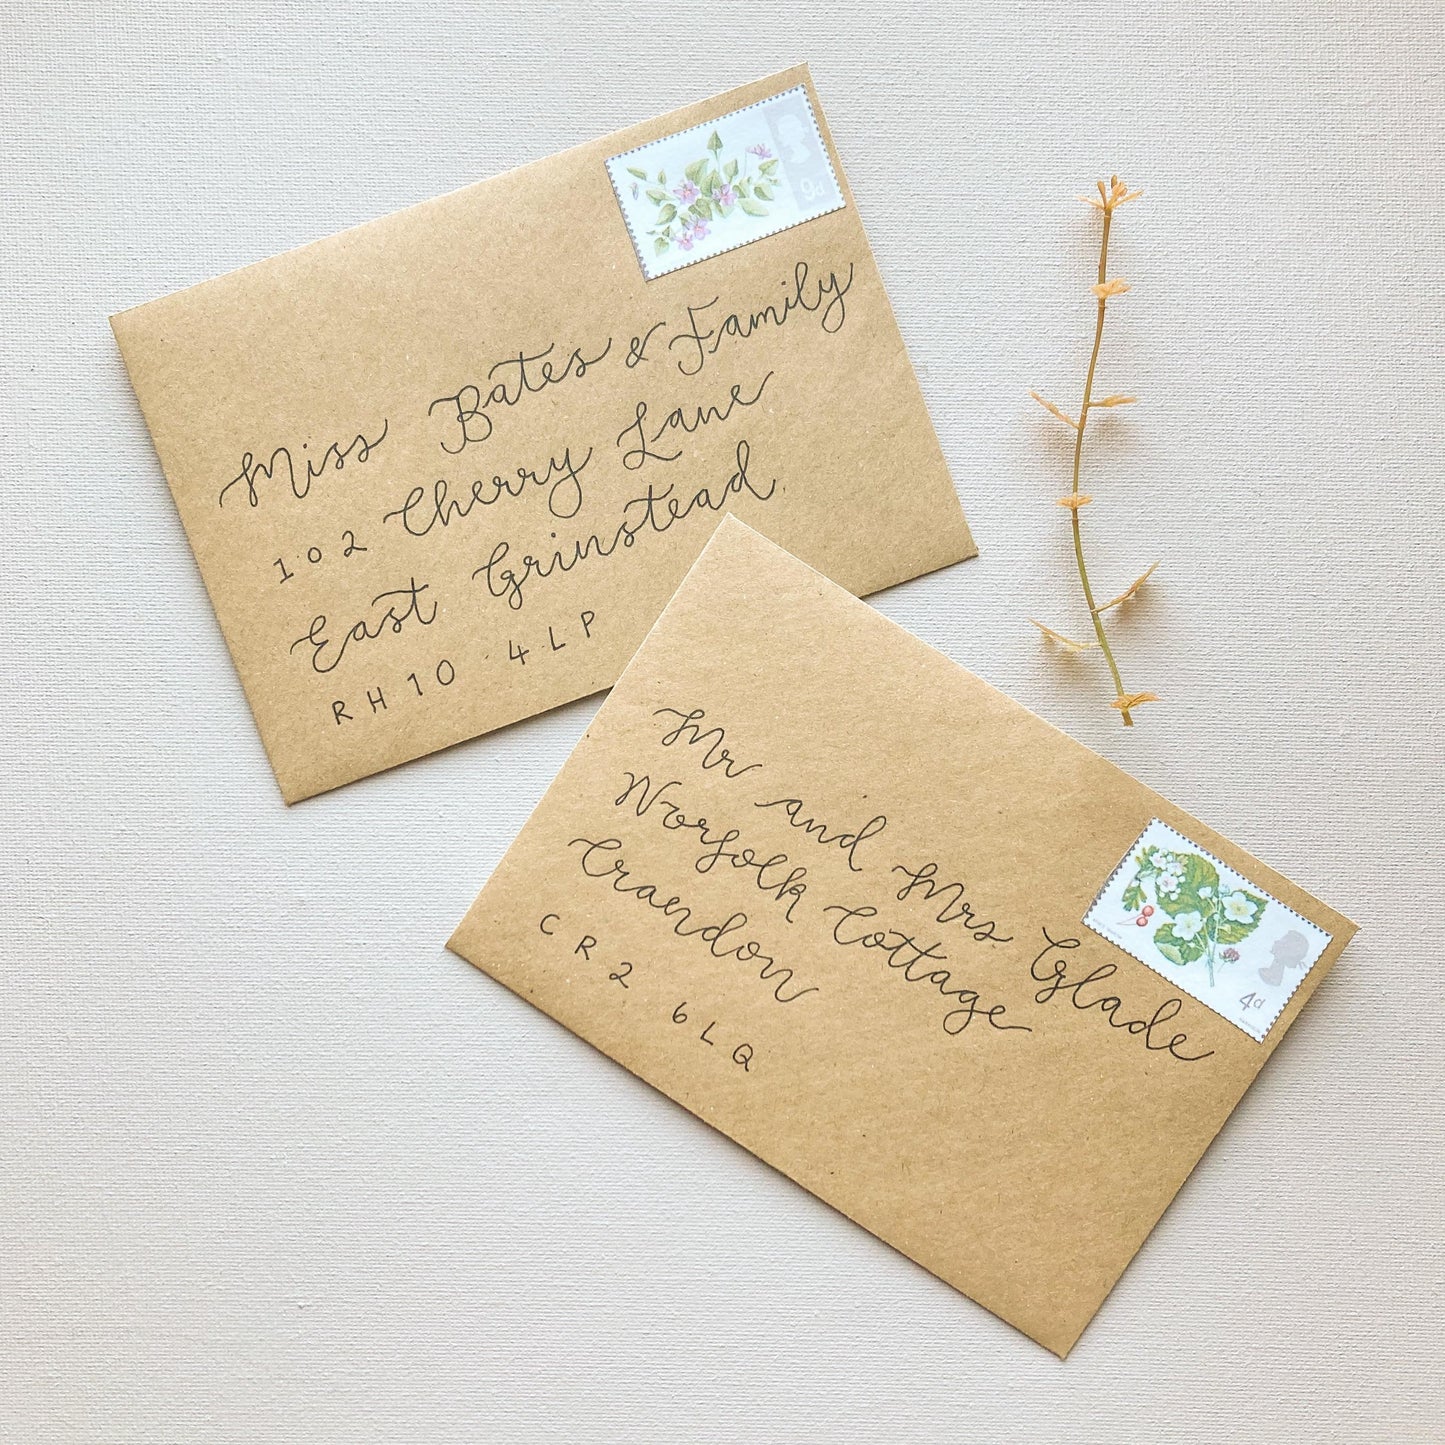 9d
Miss Bates & Family
102 Cherry Lane
East Grinstead
RH10 4LP
Mr and Mrs Glade
Worfolk Cottage
Craendon
CR2 6LQ
4d